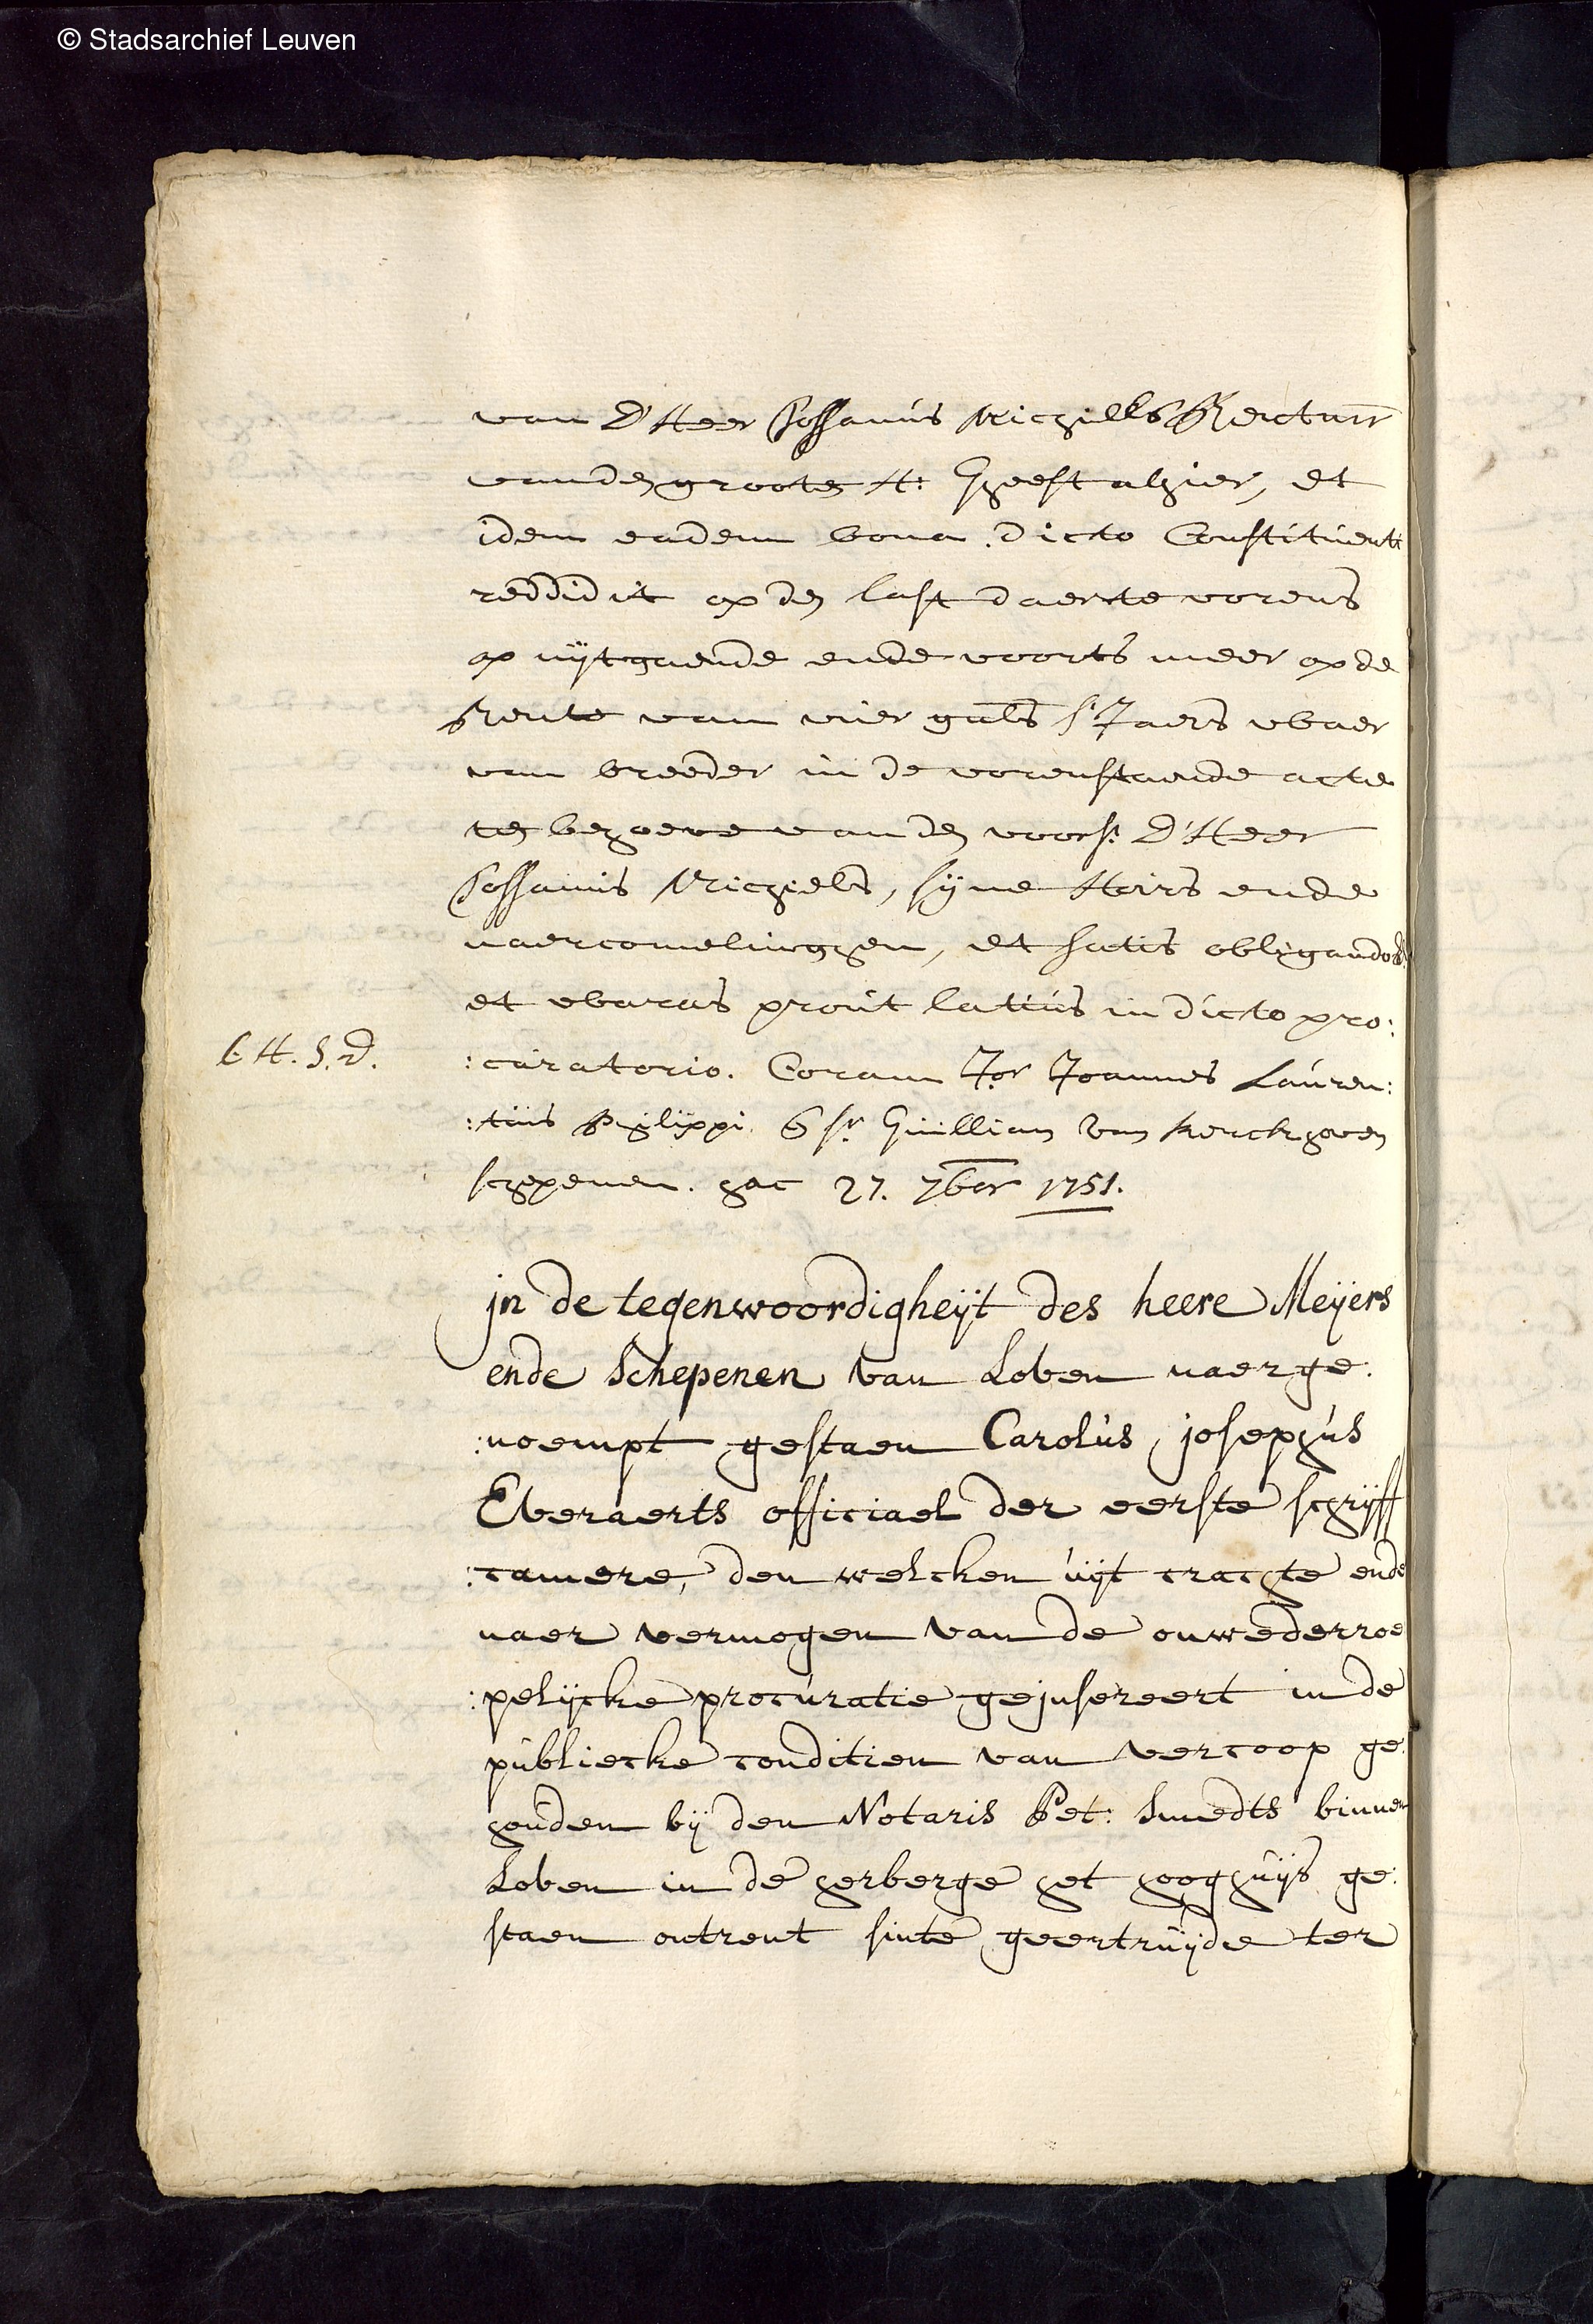 © Stadsarchief Leuven
van D'Heer Johannis Michiells Rectur
vanden grooten H: Gheest alhier, et
idem eadem bona dicto Constituenti
reddidit op den last daerte vorens
op uijtgaende ende voorts meer op de
Rente van vier guls s'Jaers vbaer
van breeder in de vorenstaende acte
ten behoeve van den voors. D'Heer
Johannis Michiels, sijne Hoirs ende
naercomelinghen, et satis obligandos
et ubaras proút latiús in dicto pro:
:curatorio. Coram Jor Joannes Lauren:
:tius Philippi Sr Guilliam Van Kerckhoven
schepenen. hac 27. 7ber 1751.
jn de tegenwoordigheijt des heere Meijers
ende Schepenen van Loven naerge:
:noempt gestaen Carolús josephús
Everaerts officiael der eerste schrijff
:camere, den welcken úijt crachte ende
naer vermogen van de onwederroe
:pelijcke procúratie gejnsereert in de
públiecke conditien van vercoop ge:
houden bij den Notaris Pet: Smedts binnen
Loven in de herberge het hooghúijs ge:
staen ontrent sinte geertrúijde ter